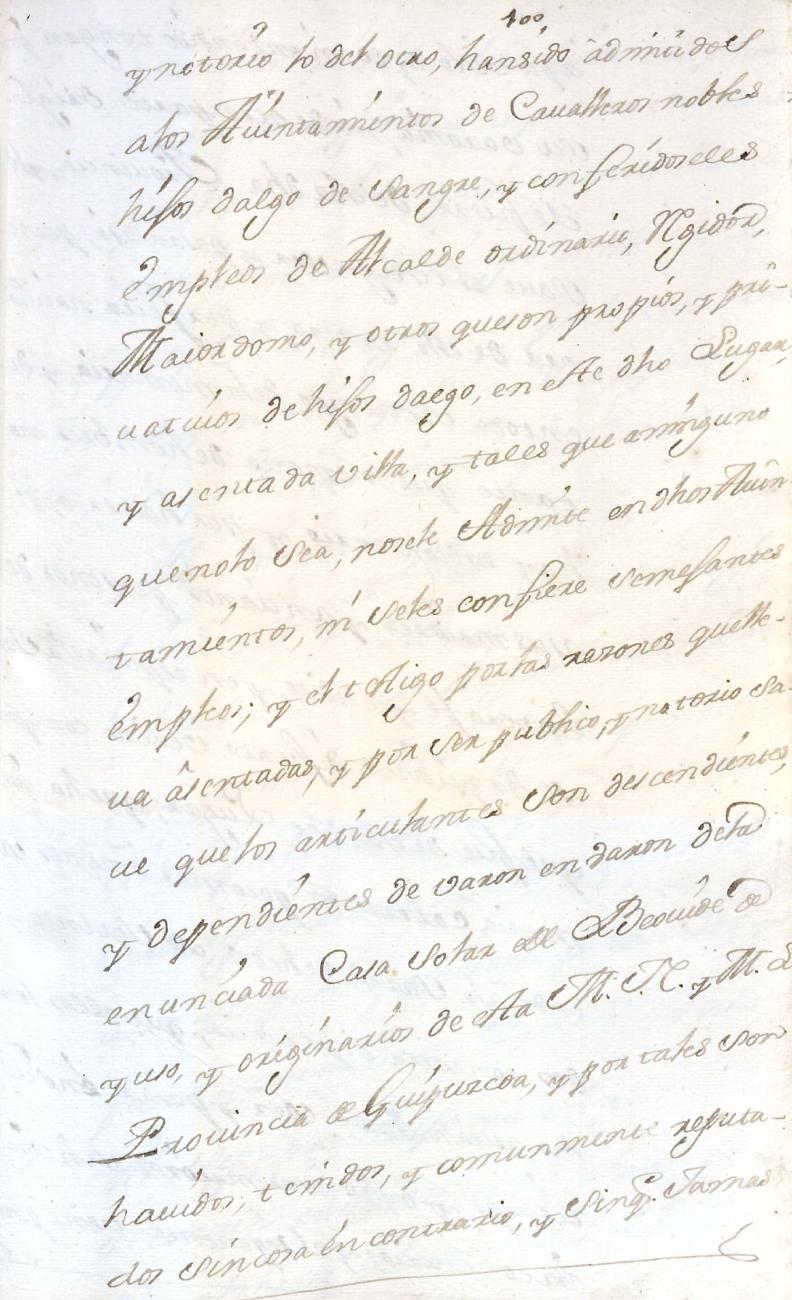 100
y notorio lo del otro, han sido admitidos
a los Aiuntamientos de Cavalleros nobles
hijos dalgo de Sangre, y conferidoseles
Empleos de Alcalde ordinario, Regidor,
Maiordomo, y otros que son propios, y pri-
uatiuos de hijos dalgo, en este dho Lugar,
y asentada villa, y tales que a ninguno
que no lo sea, no se le Admite en dhos Aiun-
tamientos, ni se les confiere semejantes
Empleos; y el testigo por las razones que lle-
ua asentadas, y por ser publico, y notorio sa-
ue que los articulantes son descendientes,
y dependientes de varon en varon de la
enunciada Casa solar de Beouide de
yuso, y originarios de esta M. N. y M. L.
Provincia de Guipuzcoa, y por tales son
hauidos, tenidos, y comunmente reputa-
dos sin cosa en contrario, y sin q. Jamas